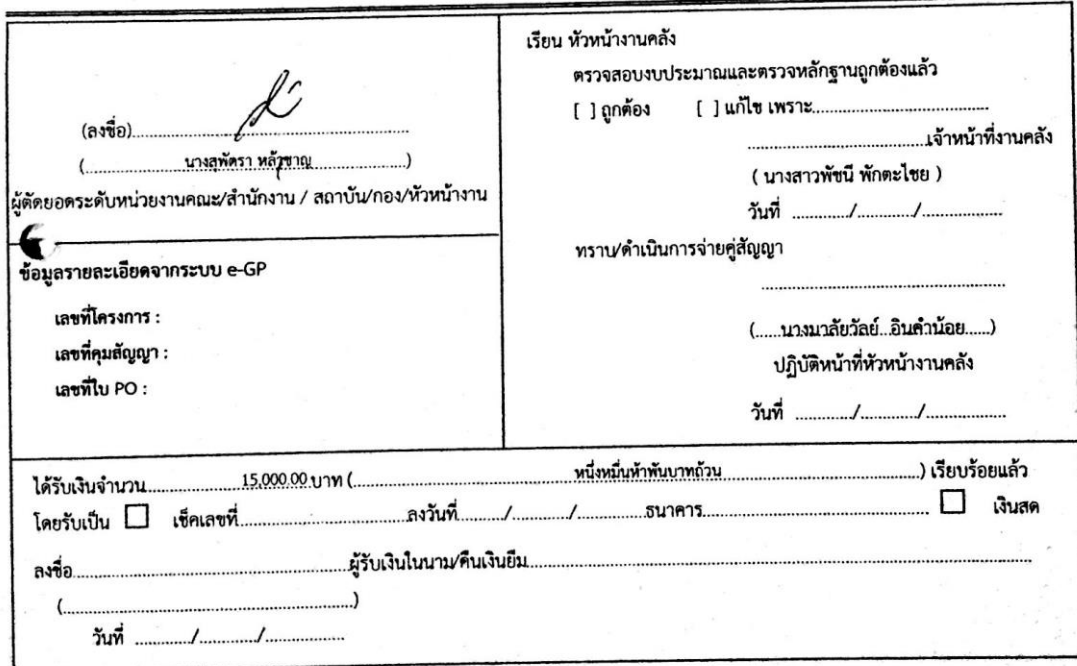 (ลงชื่อ)..............................
(..............นางสุพัตรา หล้าชาญ..............)
ผู้ตัดยอดระดับหน่วยงานคณะ/สำนักงาน / สถาบัน/กอง/หัวหน้างาน
ข้อมูลรายละเอียดจากระบบ e-GP
เลขที่โครงการ :
เลขที่คุมสัญญา :
เลขที่ใบ PO :
เรียน หัวหน้างานคลัง
ตรวจสอบงบประมาณและตรวจหลักฐานถูกต้องแล้ว
[ ] ถูกต้อง [ ] แก้ไข เพราะ..............................
..............................เจ้าหน้าที่งานคลัง
( นางสาวพัชนี พักตะไชย )
วันที่ ............/............/..................
ทราบ/ดำเนินการจ่ายคู่สัญญา
..............................
(......นางมาลัยวัลย์...อินคำน้อย......)
ปฏิบัติหน้าที่หัวหน้างานคลัง
วันที่ ............/............/..................
ได้รับเงินจำนวน..............15,000.00 บาท (..............หนึ่งหมื่นห้าพันบาทถ้วน..............) เรียบร้อยแล้ว
โดยรับเป็น ☐ เช็คเลขที่..............................ลงวันที่........../............/..............ธนาคาร.............................. ☐ เงินสด
ลงชื่อ..............................ผู้รับเงินในนาม/คืนเงินยืม..............................
(..............................)
วันที่ ............/............/..................